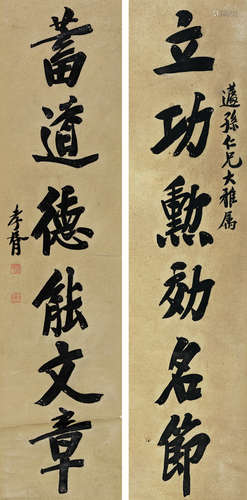 蘧孫仁兄大雅属
立功勲効名節
蓄道德能文章
孝胥